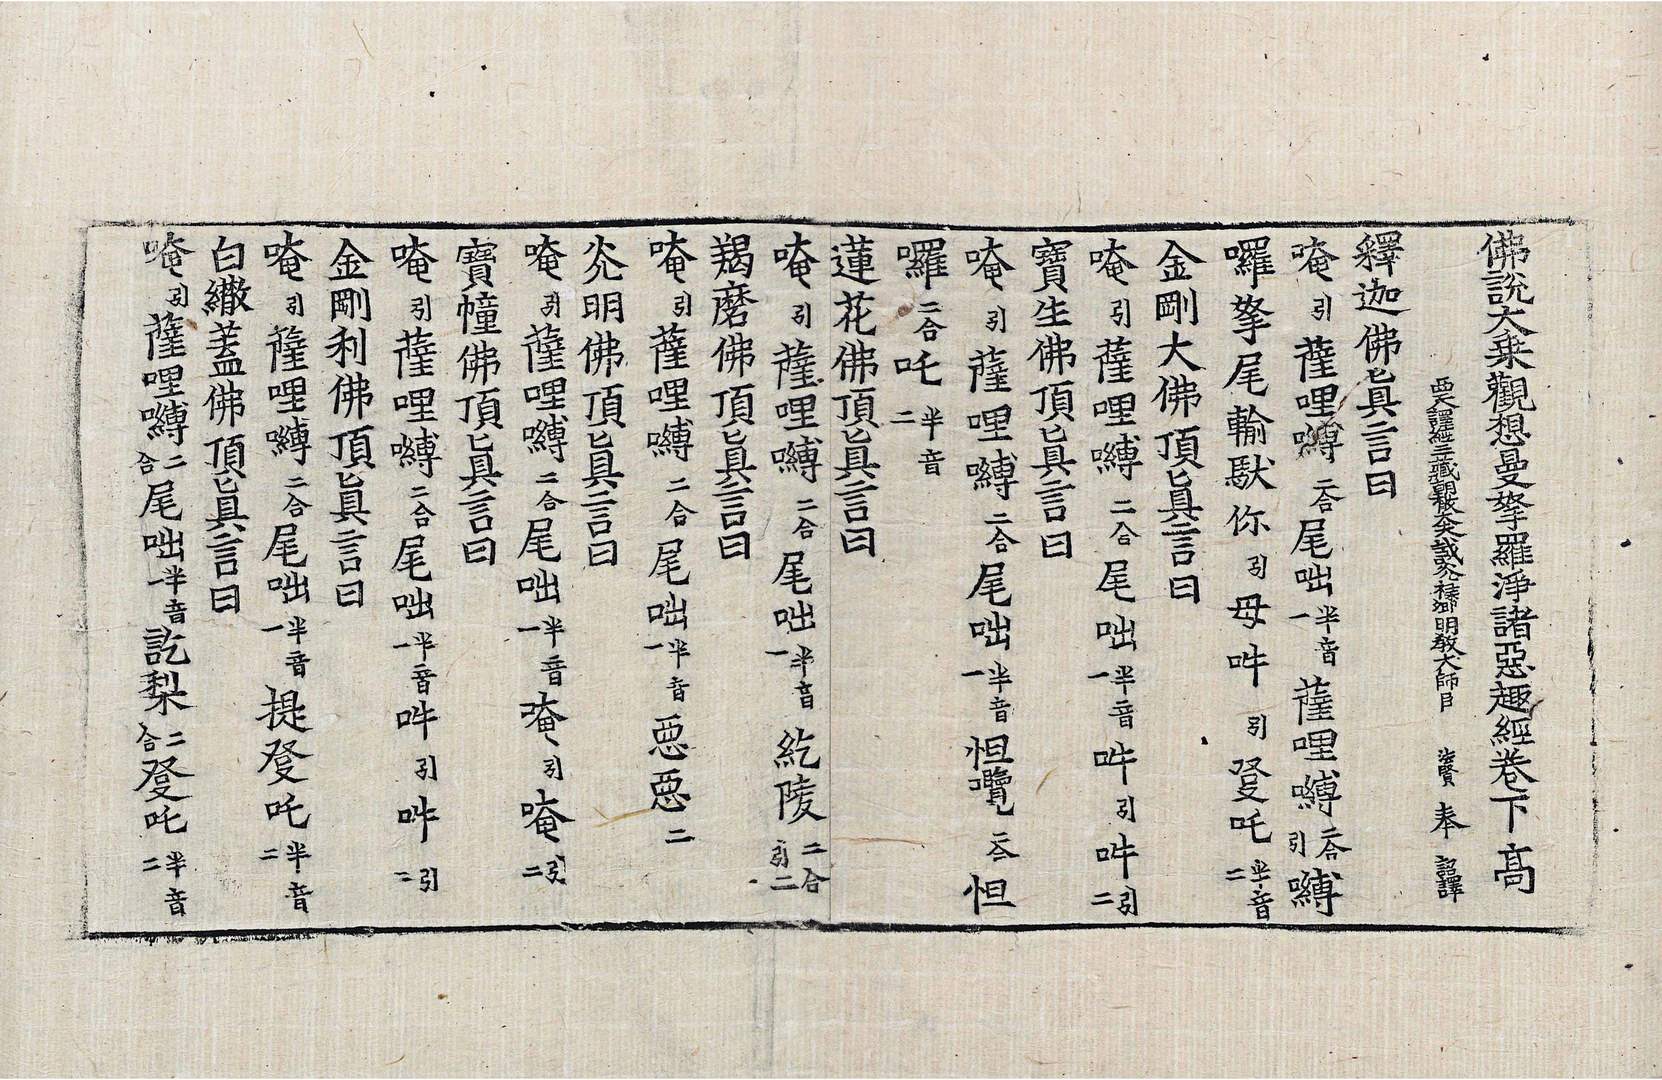 佛說大乗觀想曼拏羅淨諸惡趣經卷下 高
西天譯經三藏朝散大夫試光祿卿明教大師臣 法賢 奉 詔譯
釋迦佛眞言曰
唵引薩哩嚩二合尾咄半音一薩哩嚩二合引嚩
囉拏尾輸馱你引母吽引發吒半音二
金剛大佛頂眞言曰
唵引薩哩嚩二合尾咄半音一吽引吽引二
寶生佛頂眞言曰
唵引薩哩嚩二合尾咄半音一怛囕二合怛
囉二合吒半音二
蓮花佛頂眞言曰
唵引薩哩嚩二合尾咄半音一紇陵二合引二
羯磨佛頂眞言曰
唵引薩哩嚩二合尾咄半音一惡惡二
光明佛頂眞言曰
唵引薩哩嚩二合尾咄半音一唵引唵引二
寶幢佛頂眞言曰
唵引薩哩嚩二合尾咄半音一吽引吽引二
金剛利佛頂眞言曰
唵引薩哩嚩二合尾咄半音一提發吒半音二
白繖蓋佛頂眞言曰
唵引薩哩嚩二合尾咄半音一訖梨二合發吒半音二